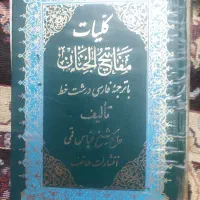 کلیات
مفاتیح الجنان
با ترجمه فارسی درشت خط
تألیف
حاج شیخ عباس قمی
انتشارات